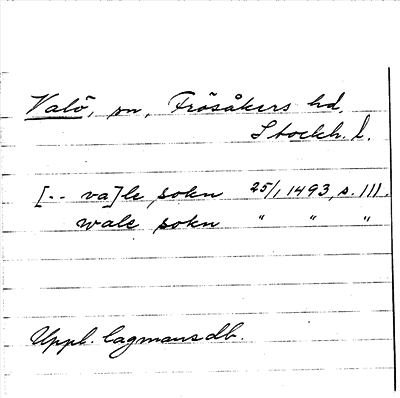 Valö, sn, Frösåkers hd.
Stockh. l.
[-- va]le sokn 25/1 1493, s. 111.
wale sokn " " "
Uppl. lagmansdb.